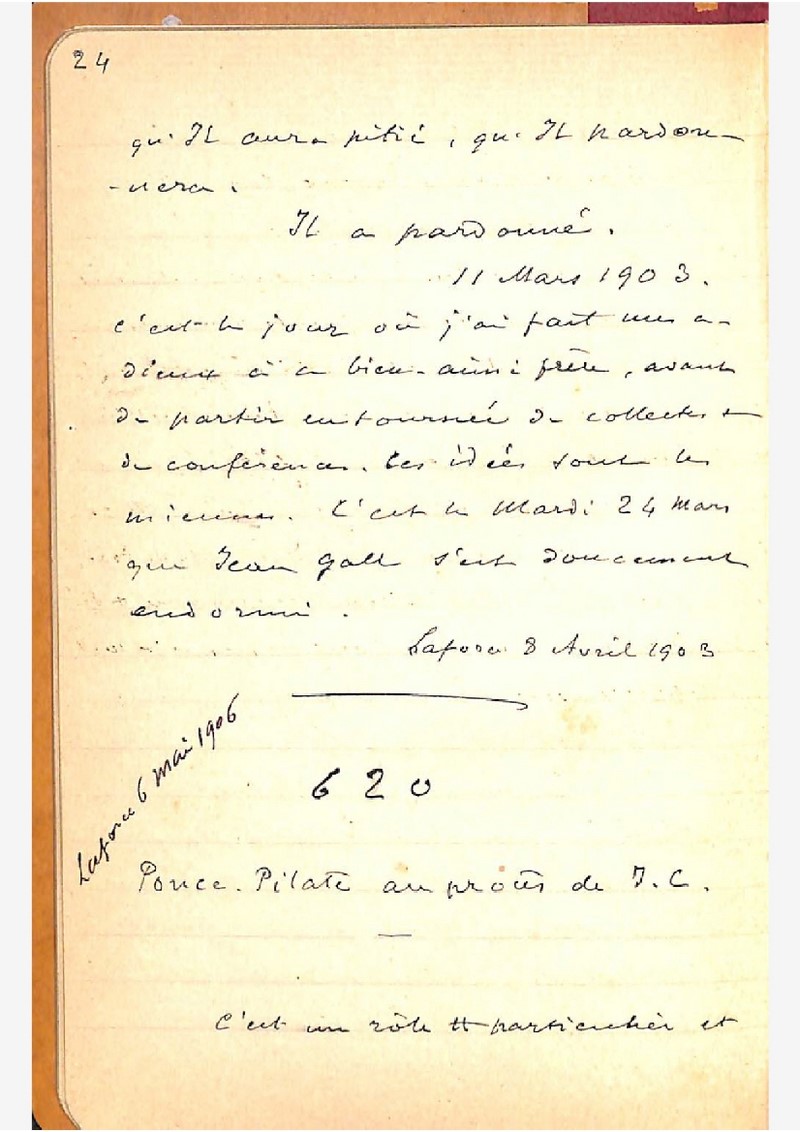 24
qu'Il aura pitié, qu'Il pardon-
-nera.
Il a pardonné.
11 Mars 1903.
C'est le jour où j'ai fait mes a-
dieux à ce bien-aimé frère, avant
de partir en tournée de collectes et
de conférences. Ces idées sont les
miennes. C'est le Mardi 24 Mars
que Jean Gall s'est doucement
endormi.
Laforce 8 Avril 1903
Laforce 6 Mai 1906
620
Ponce-Pilate au procès de J.C.
C'est un rôle tt particulier et